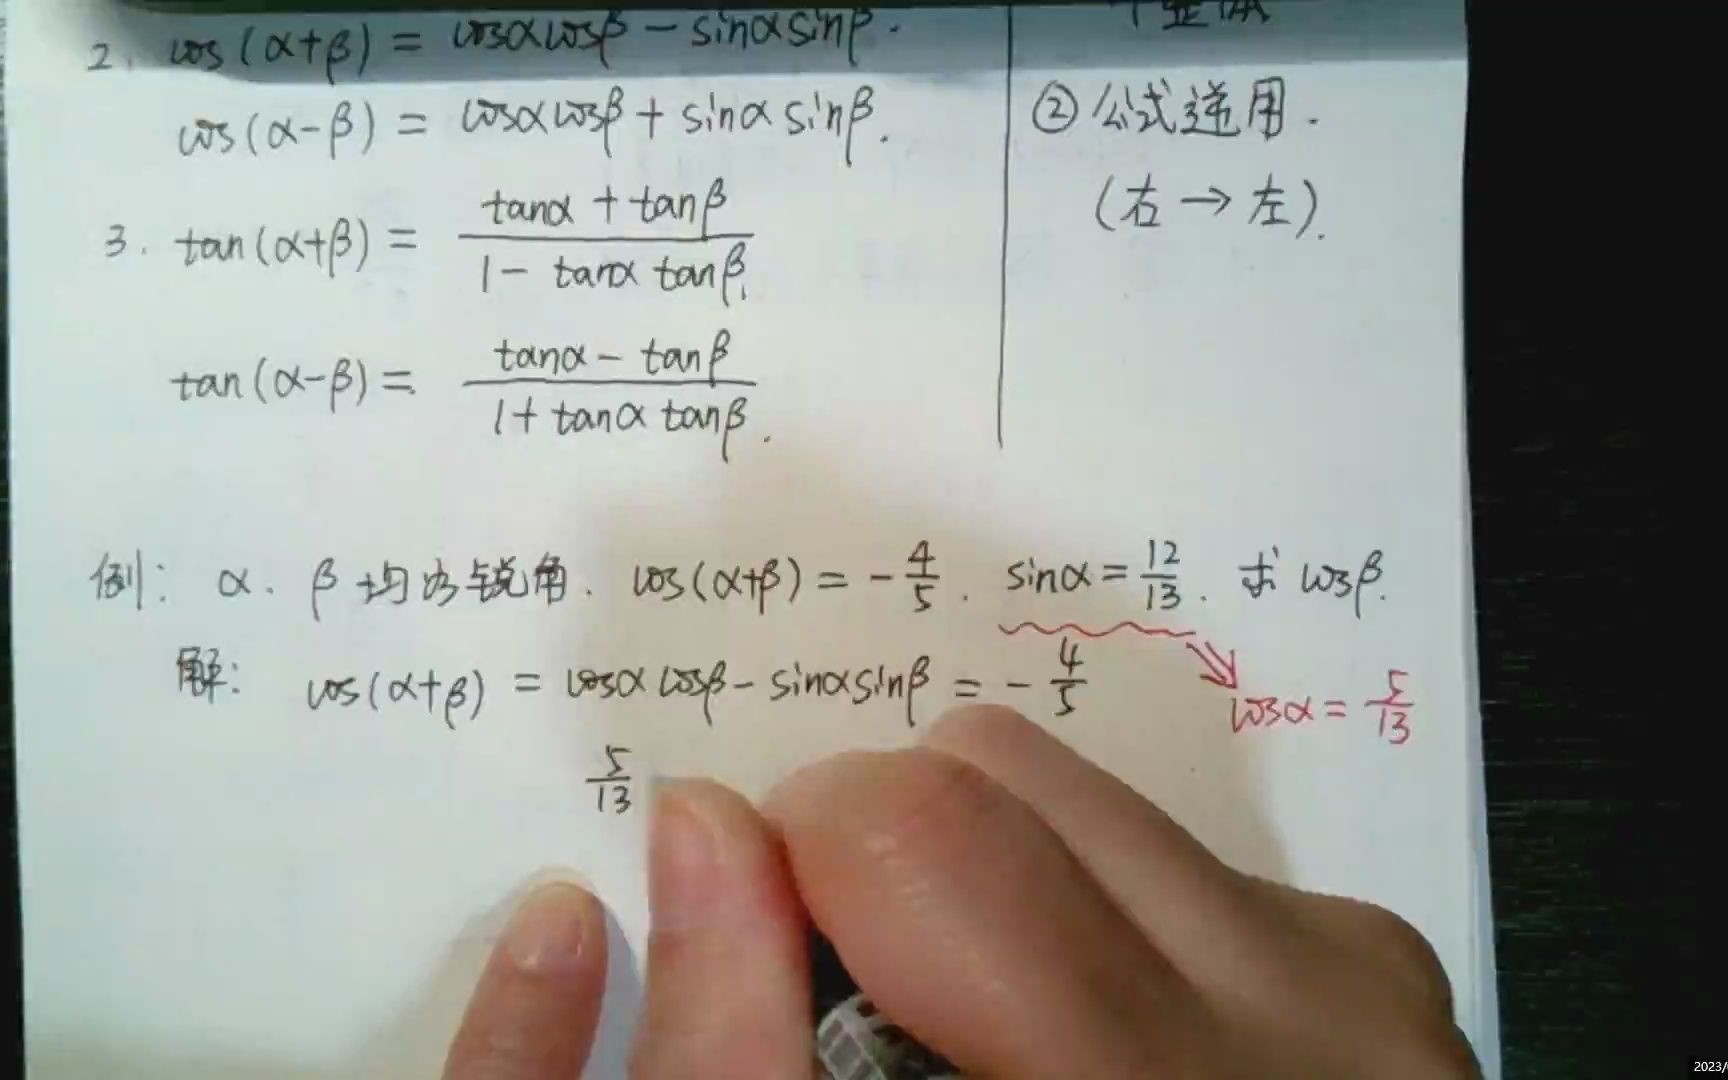 2. cos(α+β) = cosαcosβ - sinαsinβ.
cos(α-β) = cosαcosβ + sinαsinβ.
3. tan(α+β) = \frac{tanα + tanβ}{1 - tanα tanβ}
tan(α-β) = \frac{tanα - tanβ}{1 + tanα tanβ}.
②公式逆用.
(右→左).
例: α、β均为锐角. cos(α+β) = -\frac{4}{5}. sinα = \frac{12}{13}. 求cosβ.
解: cos(α+β) = cosαcosβ - sinαsinβ = -\frac{4}{5}
cosα = \frac{5}{13}
\frac{5}{13}
2023/